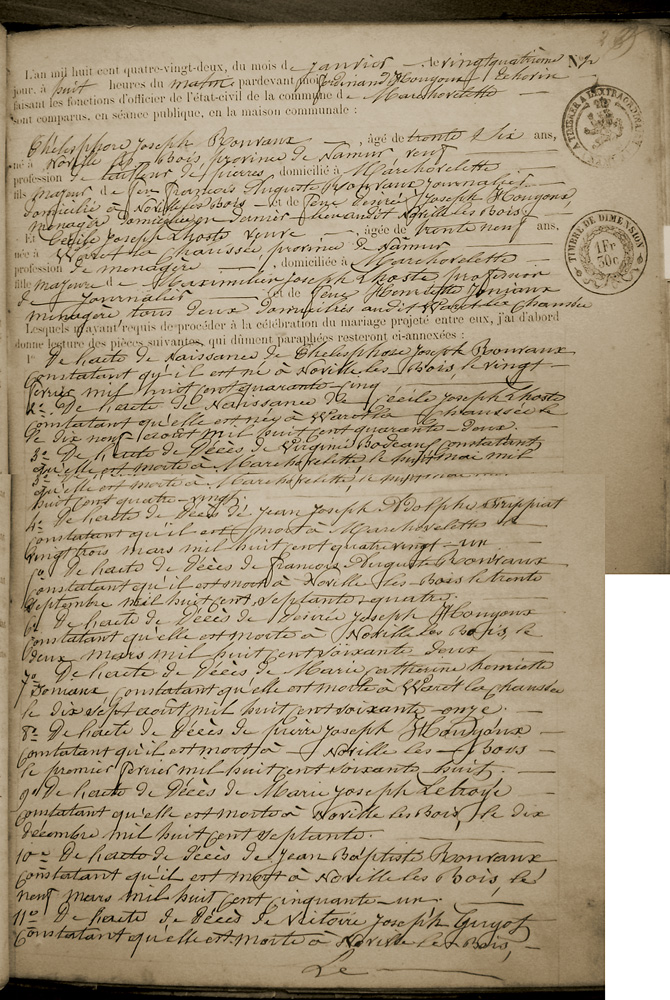 L'an mil huit cent quatre-vingt-deux, du mois de janvier le vingt quatrième N° 2
jour, à huit heures du matin pardevant moi Ferdinand Houyoux Echevin
faisant les fonctions d'officier de l'état-civil de la commune de Marchovelette
sont comparus, en séance publique, en la maison communale :
Thélesphore Joseph Rouvaux, âgé de trente & six ans,
né à Noville les bois, province de Namur, veuf
profession de tailleur de pierres domicilié à Marchovelette
fils majeur de feu François Auguste Rouvaux journalier
domicilié à Noville les Bois et de feue désirée Joseph Houyoux
ménagère domiciliée en dernier lieu audit Noville les Bois.
Et Cécile Joseph Lhoste Veuve, âgée de trente neuf ans,
née à Waret la Chaussée, province de Namur
profession de ménagère, domiciliée à Marchovelette
fille majeure de Maximilien Joseph Lhoste profession
de journalier et de feue Henriette Donjeaux
ménagère tous deux domiciliés audit Waret la Chaussée
Lesquels m'ayant requis de procéder à la célébration du mariage projeté entre eux, j'ai d'abord
donné lecture des pièces suivantes, qui dûment paraphées resteront ci-annexées :
1° De l'acte de Naissance de Thélesphore Joseph Rouvaux
Constatant qu'il est né à Noville les Bois, le vingt
février mil huit cent quarante-cinq
2° De l'acte de Naissance de Cécile Joseph Lhoste
Constatant qu'elle est née à Waret la Chaussée le
le dix neuf août mil huit cent quarante-deux.
3° De l'acte de Décès de Virginie Bodeau Constatant
qu'elle est morte à Marchovelette le huit mai mil
3°
qu'elle est morte à Marchovelette, le huit mai mil
huit cent quatre-vingt.
4° De l'acte de Décès de Jean Joseph Adolphe Frippiat
Constatant qu'il est mort à Marchovelette le
vingt trois mars mil huit cent quatre vingt-un
5° De l'acte de Décès de François Auguste Rouvaux
Constatant qu'il est mort à Noville les-Bois le trente
Septembre mil huit cent septante quatre.
6° De l'acte de Décès de désirée Joseph Houyoux
Constatant qu'elle est morte à Noville les Bois, le
deux mars mil huit cent soixante deux
7° De l'acte de Décès de Marie Catherine henriette
Constatant qu'elle est morte à Waret la Chaussée
le dix sept août mil huit cent soixante-onze.
8° De l'acte de Décès de pierre Joseph Houyoux
Constatant qu'il est mort à Noville les Bois
le premier février mil huit cent soixante huit.
9° De l'acte de Décès de Marie Joseph Letroye
Constatant qu'elle est morte à Noville les Bois, le dix
décembre mil huit cent septante.
10° De l'acte de décès de Jean Baptiste Rouvaux
Constatant qu'il est mort à Noville les Bois, le
neuf mars mil huit cent cinquante-un
11° De l'acte de Décès de Victoire Joseph Guyot
Constatant qu'elle est morte à Noville les Bois,
Le
TIMBRE DE DIMENSION
1 Fr
30 c